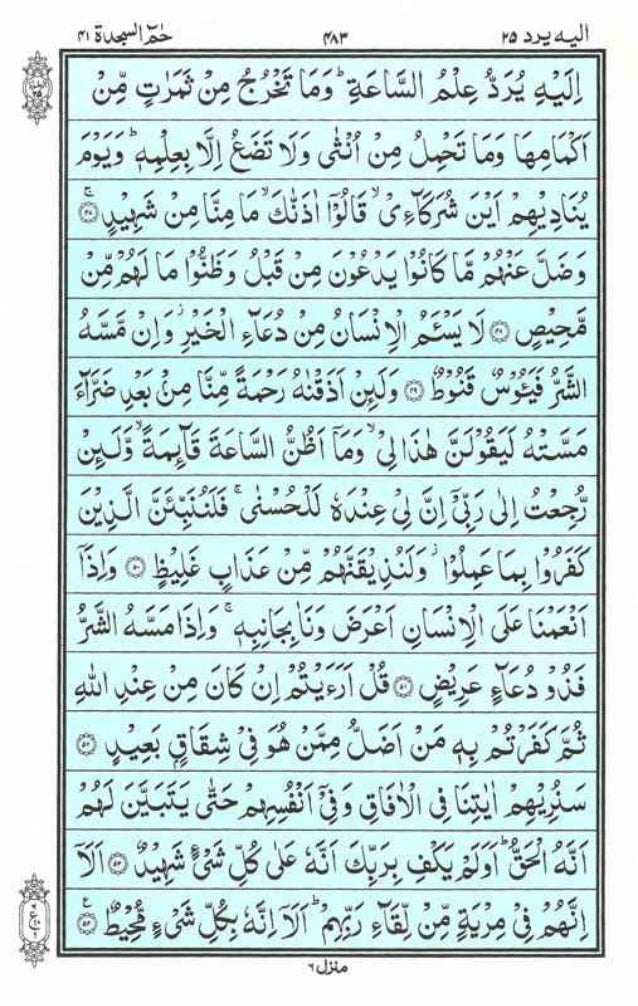 اليه يرد ٢٥ ٤٨٣ حٰمٓ السجدة ٤١
اِلَيْهِ يُرَدُّ عِلْمُ السَّاعَةِ ؕ وَمَا تَخْرُجُ مِنْ ثَمَرٰتٍ مِّنْ
اَكْمَامِهَا وَمَا تَحْمِلُ مِنْ اُنْثٰى وَلَا تَضَعُ اِلَّا بِعِلْمِهٖ ؕ وَيَوْمَ
يُنَادِيْهِمْ اَيْنَ شُرَكَآءِىْ ۙ قَالُوْۤا اٰذَنّٰكَ ۙ مَا مِنَّا مِنْ شَهِيْدٍ ۚ ۝٤٧
وَضَلَّ عَنْهُمْ مَّا كَانُوْا يَدْعُوْنَ مِنْ قَبْلُ وَظَنُّوْا مَا لَهُمْ مِّنْ
مَّحِيْصٍ ۝٤٨ لَا يَسْـَٔمُ الْاِنْسَانُ مِنْ دُعَآءِ الْخَيْرِ ؗ وَاِنْ مَّسَّهُ
الشَّرُّ فَيَـُٔوْسٌ قَنُوْطٌ ۝٤٩ وَلَئِنْ اَذَقْنٰهُ رَحْمَةً مِّنَّا مِنْۢ بَعْدِ ضَرَّآءَ
مَسَّتْهُ لَيَقُوْلَنَّ هٰذَا لِىْ ۙ وَمَاۤ اَظُنُّ السَّاعَةَ قَآئِمَةً ۙ وَّلَئِنْ
رُّجِعْتُ اِلٰى رَبِّىْۤ اِنَّ لِىْ عِنْدَهٗ لَلْحُسْنٰى ۚ فَلَنُنَبِّئَنَّ الَّذِيْنَ
كَفَرُوْا بِمَا عَمِلُوْا ؗ وَلَنُذِيْقَنَّهُمْ مِّنْ عَذَابٍ غَلِيْظٍ ۝٥٠ وَاِذَاۤ
اَنْعَمْنَا عَلَى الْاِنْسَانِ اَعْرَضَ وَنَاٰ بِجَانِبِهٖ ۚ وَاِذَا مَسَّهُ الشَّرُّ
فَذُوْ دُعَآءٍ عَرِيْضٍ ۝٥١ قُلْ اَرَءَيْتُمْ اِنْ كَانَ مِنْ عِنْدِ اللّٰهِ
ثُمَّ كَفَرْتُمْ بِهٖ مَنْ اَضَلُّ مِمَّنْ هُوَ فِىْ شِقَاقٍۭ بَعِيْدٍ ۝٥٢
سَنُرِيْهِمْ اٰيٰتِنَا فِى الْاٰفَاقِ وَفِىْۤ اَنْفُسِهِمْ حَتّٰى يَتَبَيَّنَ لَهُمْ
اَنَّهُ الْحَقُّ ؕ اَوَلَمْ يَكْفِ بِرَبِّكَ اَنَّهٗ عَلٰى كُلِّ شَىْءٍ شَهِيْدٌ ۝٥٣ اَلَاۤ
اِنَّهُمْ فِىْ مِرْيَةٍ مِّنْ لِّقَآءِ رَبِّهِمْ ؕ اَلَاۤ اِنَّهٗ بِكُلِّ شَىْءٍ مُّحِيْطٌ ۝٥٤
منزل ٦